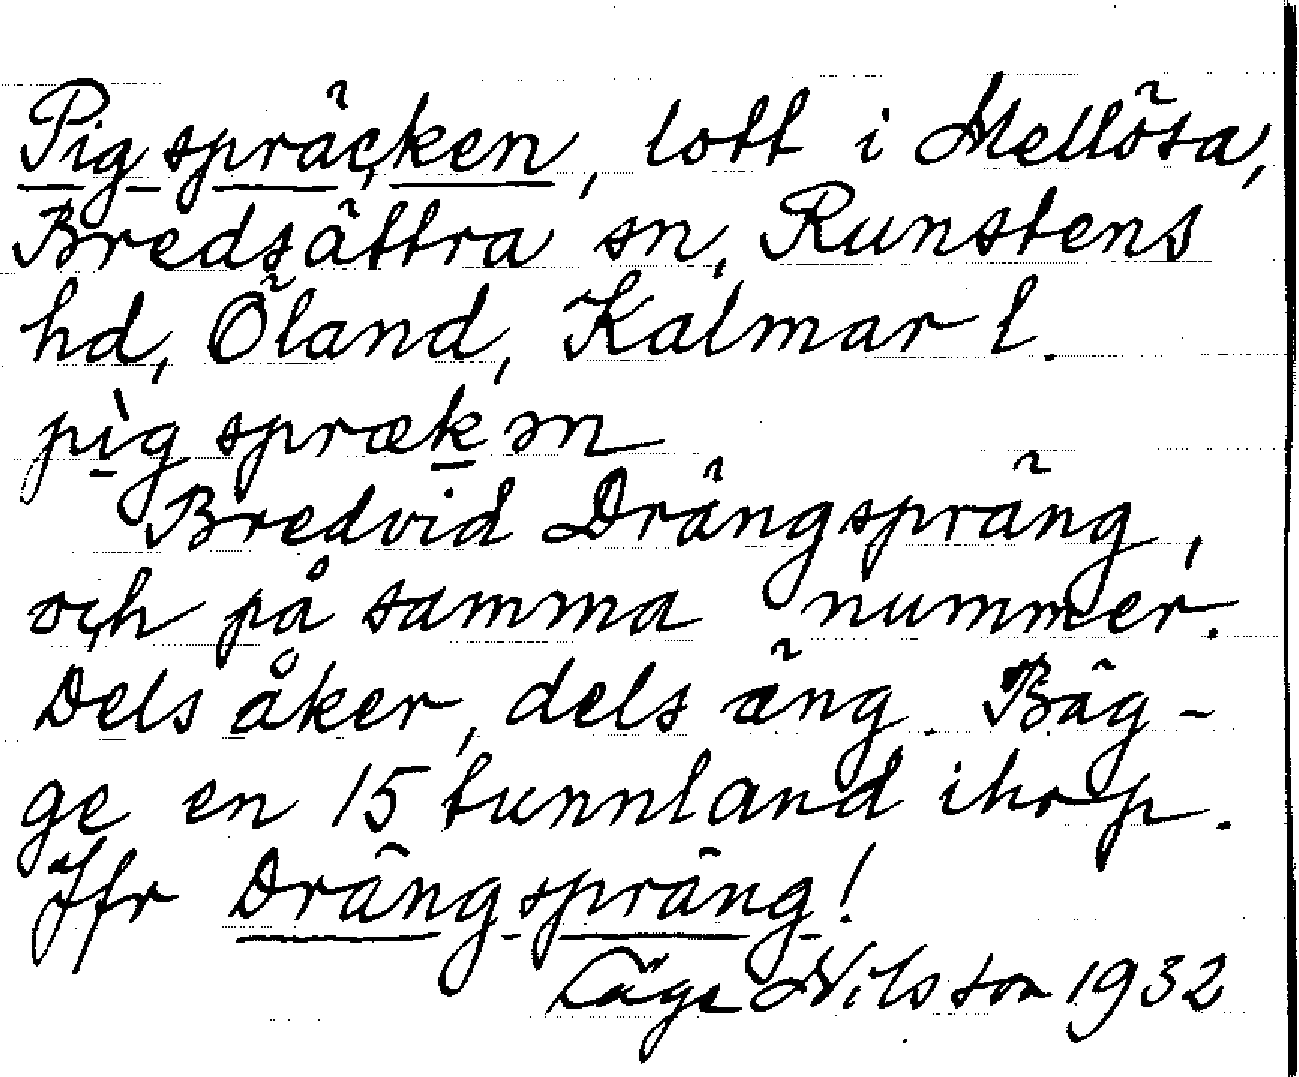 Pigspräcken, lott i Mellösa,
Bredsättra sn, Runstens
hd, Öland, Kalmar l.
pìgsprækən
Bredvid Drängspräng,
och på samma nummer.
Dels åker, dels äng. Bäg-
ge en 15 tunnland ihop.
Jfr Drängspräng!
Åge Nilsson 1932